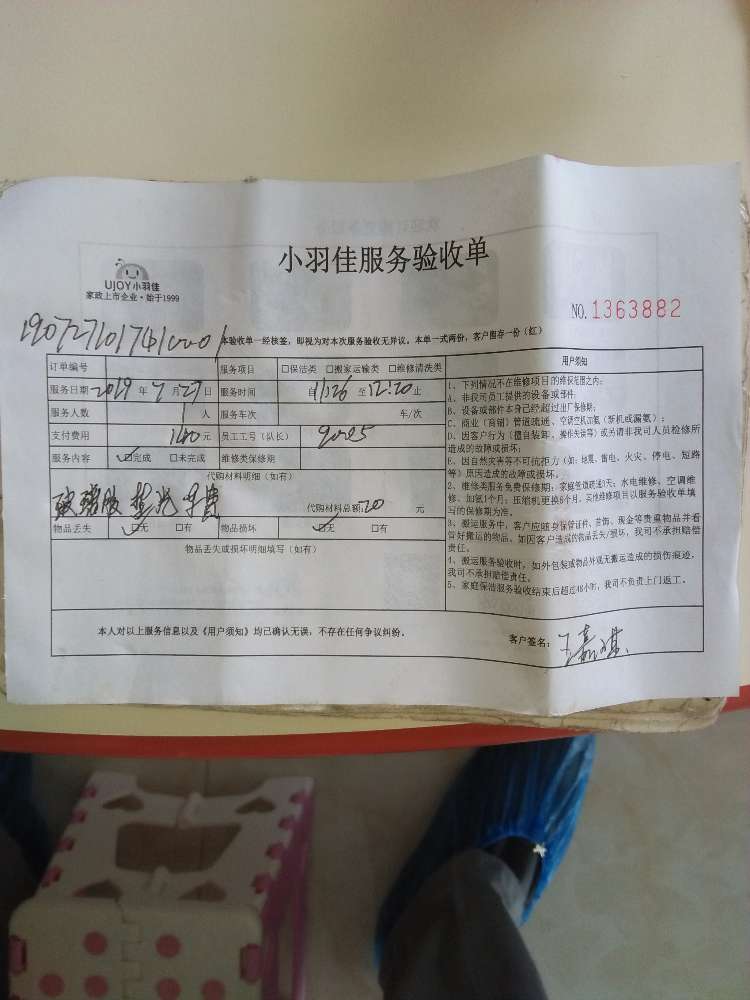 小羽佳服务验收单
UJOY小羽佳
家政上市企业·始于1999
NO. 1363882
本验收单一经核签，即视为对本次服务验收无异议。本单一式两份，客户留存一份（红）
订单编号
服务项目 □保洁类 □搬家运输类 □维修清洗类
服务日期 2019 年 7 月 27 日 服务时间 自 11:26 至 12:20 止
服务人数 1 人 服务车次 车/次
支付费用 140 元 员工工号（队长） 9025
服务内容 ☑完成 □未完成 维修类保修期
代购材料明细（如有）
玻璃胶
代购材料总额: 20 元
物品丢失 ☑无 □有 物品损坏 ☑无 □有
物品丢失或损坏明细填写（如有）
用户须知
1、下列情况不在维修项目的维保范围之内:
A、非我司员工提供的设备或部件;
B、设备或部件本身已经超过出厂保修期;
C、商业（商铺）管道疏通、空调空机加氨（新机或漏氨）;
D、因客户行为（擅自装卸、操作失误等）或另请非我司人员检修所
造成的故障或损坏;
E、因自然灾害等不可抗拒力（如: 地震、雷电、火灾、停电、短路
等）原因造成的故障或损坏;
2、维修类服务免费保修期: 家庭管道疏通3天; 水电维修、空调维
修、加氨1个月; 压缩机更换6个月, 其他维修项目以服务验收单填
写的保修期为准。
3、搬运服务中, 客户应随身保管证件、首饰、现金等贵重物品并看
管好搬运的物品, 如因客户造成的物品丢失/损坏, 我司不承担赔偿
责任。
4、搬运服务验收时, 如外包装或物品外观无搬运造成的损伤痕迹,
我司可不承担赔偿责任。
5、家庭保洁服务验收结束后超过48小时, 我司可不负责上门返工。
本人对以上服务信息以及《用户须知》均已确认无误，不存在任何争议纠纷。
客户签名: 王嘉琪